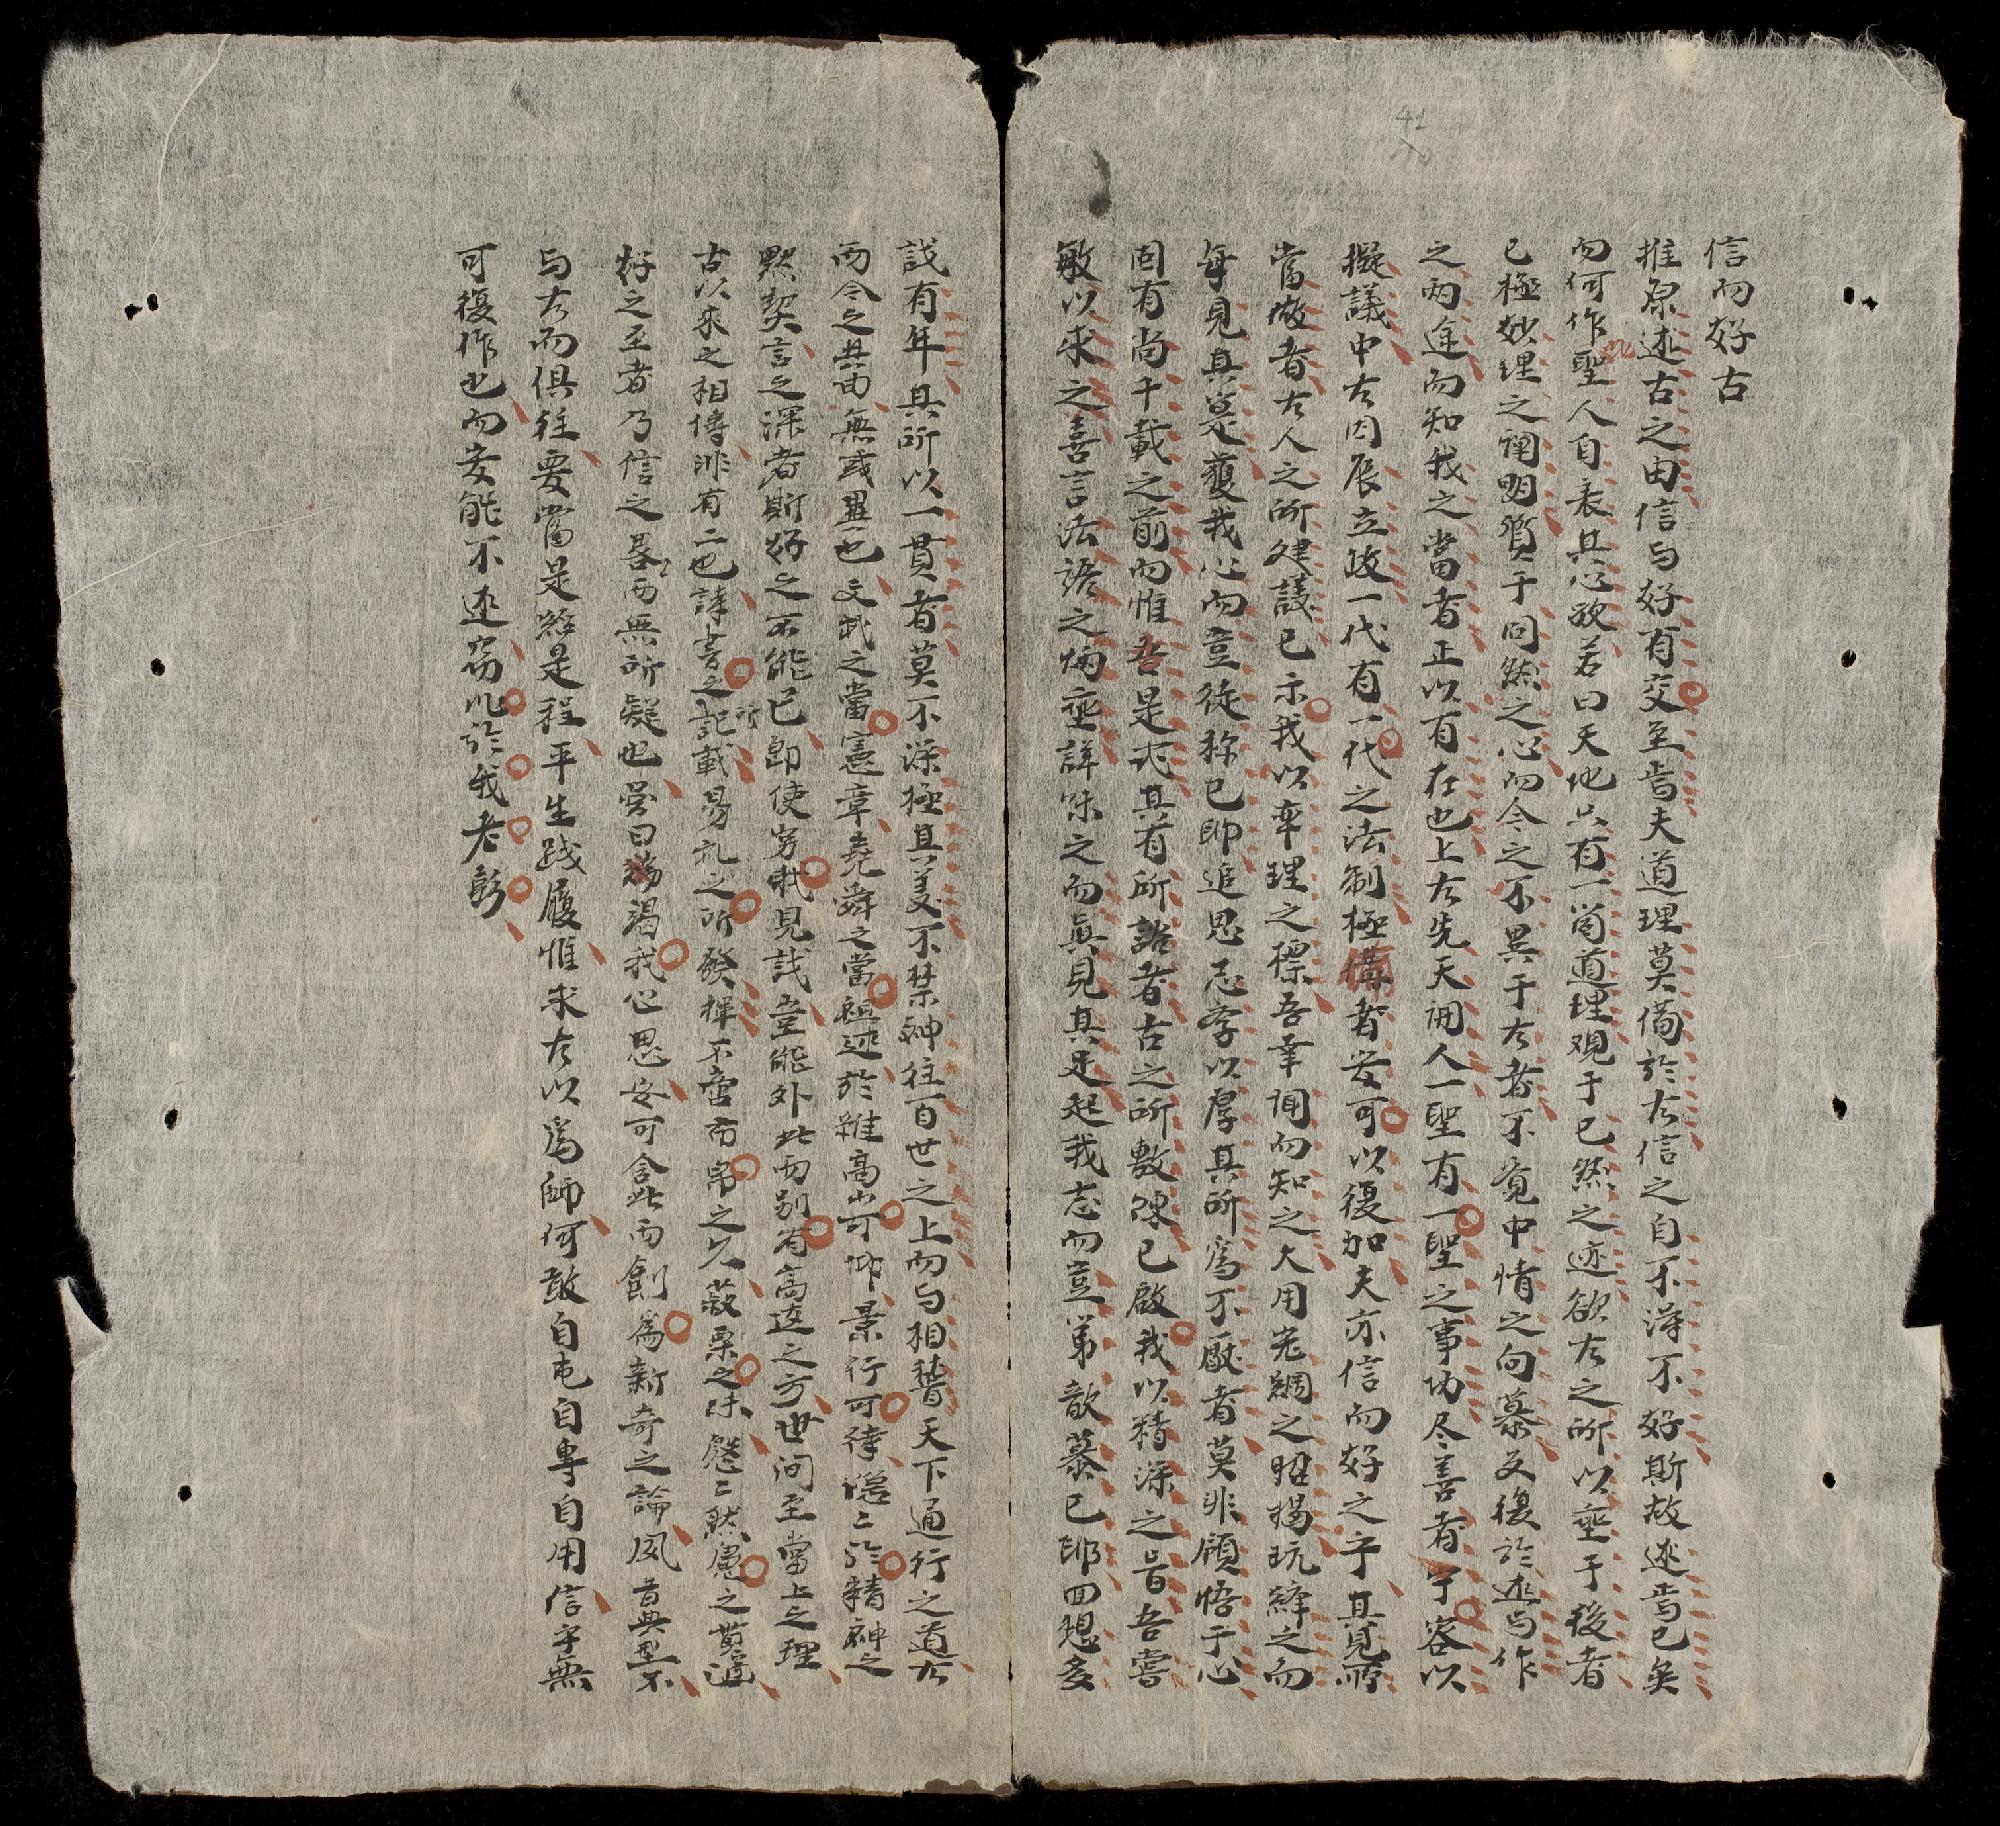 信而好古
推原述古之由信与好有交至焉夫道理莫備於古信之自不得不好斯故述焉已矣
而何作聖人自表其心故若曰天地只有一箇道理观于已然之迹欲古之所以垂于後者
已極妙理之闡明質于同然之心而今之不異于古者不覚中情之向慕又復於述与作
之两途而知我之當者正以有在也上古先天開人一聖有一聖之事功尽善者寧容以
擬議中古因辰立政一代有一代之法制極備者安可以復加夫亦信而好之乎其見所
當做者古人之所建議已示我以率理之標吾幸聞而知之大用宏綱之昭揭玩繹之而
每見其寔獲我心而豈徒称已即追思志学以厚其所為不厭者莫非領悟于心
固有尚千載之前而惟吾是式其有所諮者古之所敷陳已啟我以精深之旨吾嘗
敏以求之嘉言法語之炳垂詳味之而真見其足起我志而豈第歆慕已耶回想多
識有年其所以一貫者莫不深極其美不禁神往百世之上而与相質天下通行之道古
而今之共由無或異也文武之當憲章堯舜之當祖述於維高山可仰景行可律隱〻於精神之
默契言之深者斯好之不能已即使穷我見識豈能外此而别有高遠之方世间至當上之理
古以来之相傳非有二也詩書之所記載易礼之所發揮不啻布帛之兄菽粟之味慇〻然寓之萬遍
好之至者乃信之畧而無所疑也嘗曰殤渴我心思安可舍此而創為新奇之論夙昔典型不
与古而俱往要當是經是程平生践履惟求古以為師何敢自屯自専自用信乎無
可復作也而安能不述窃比於我老彭
41